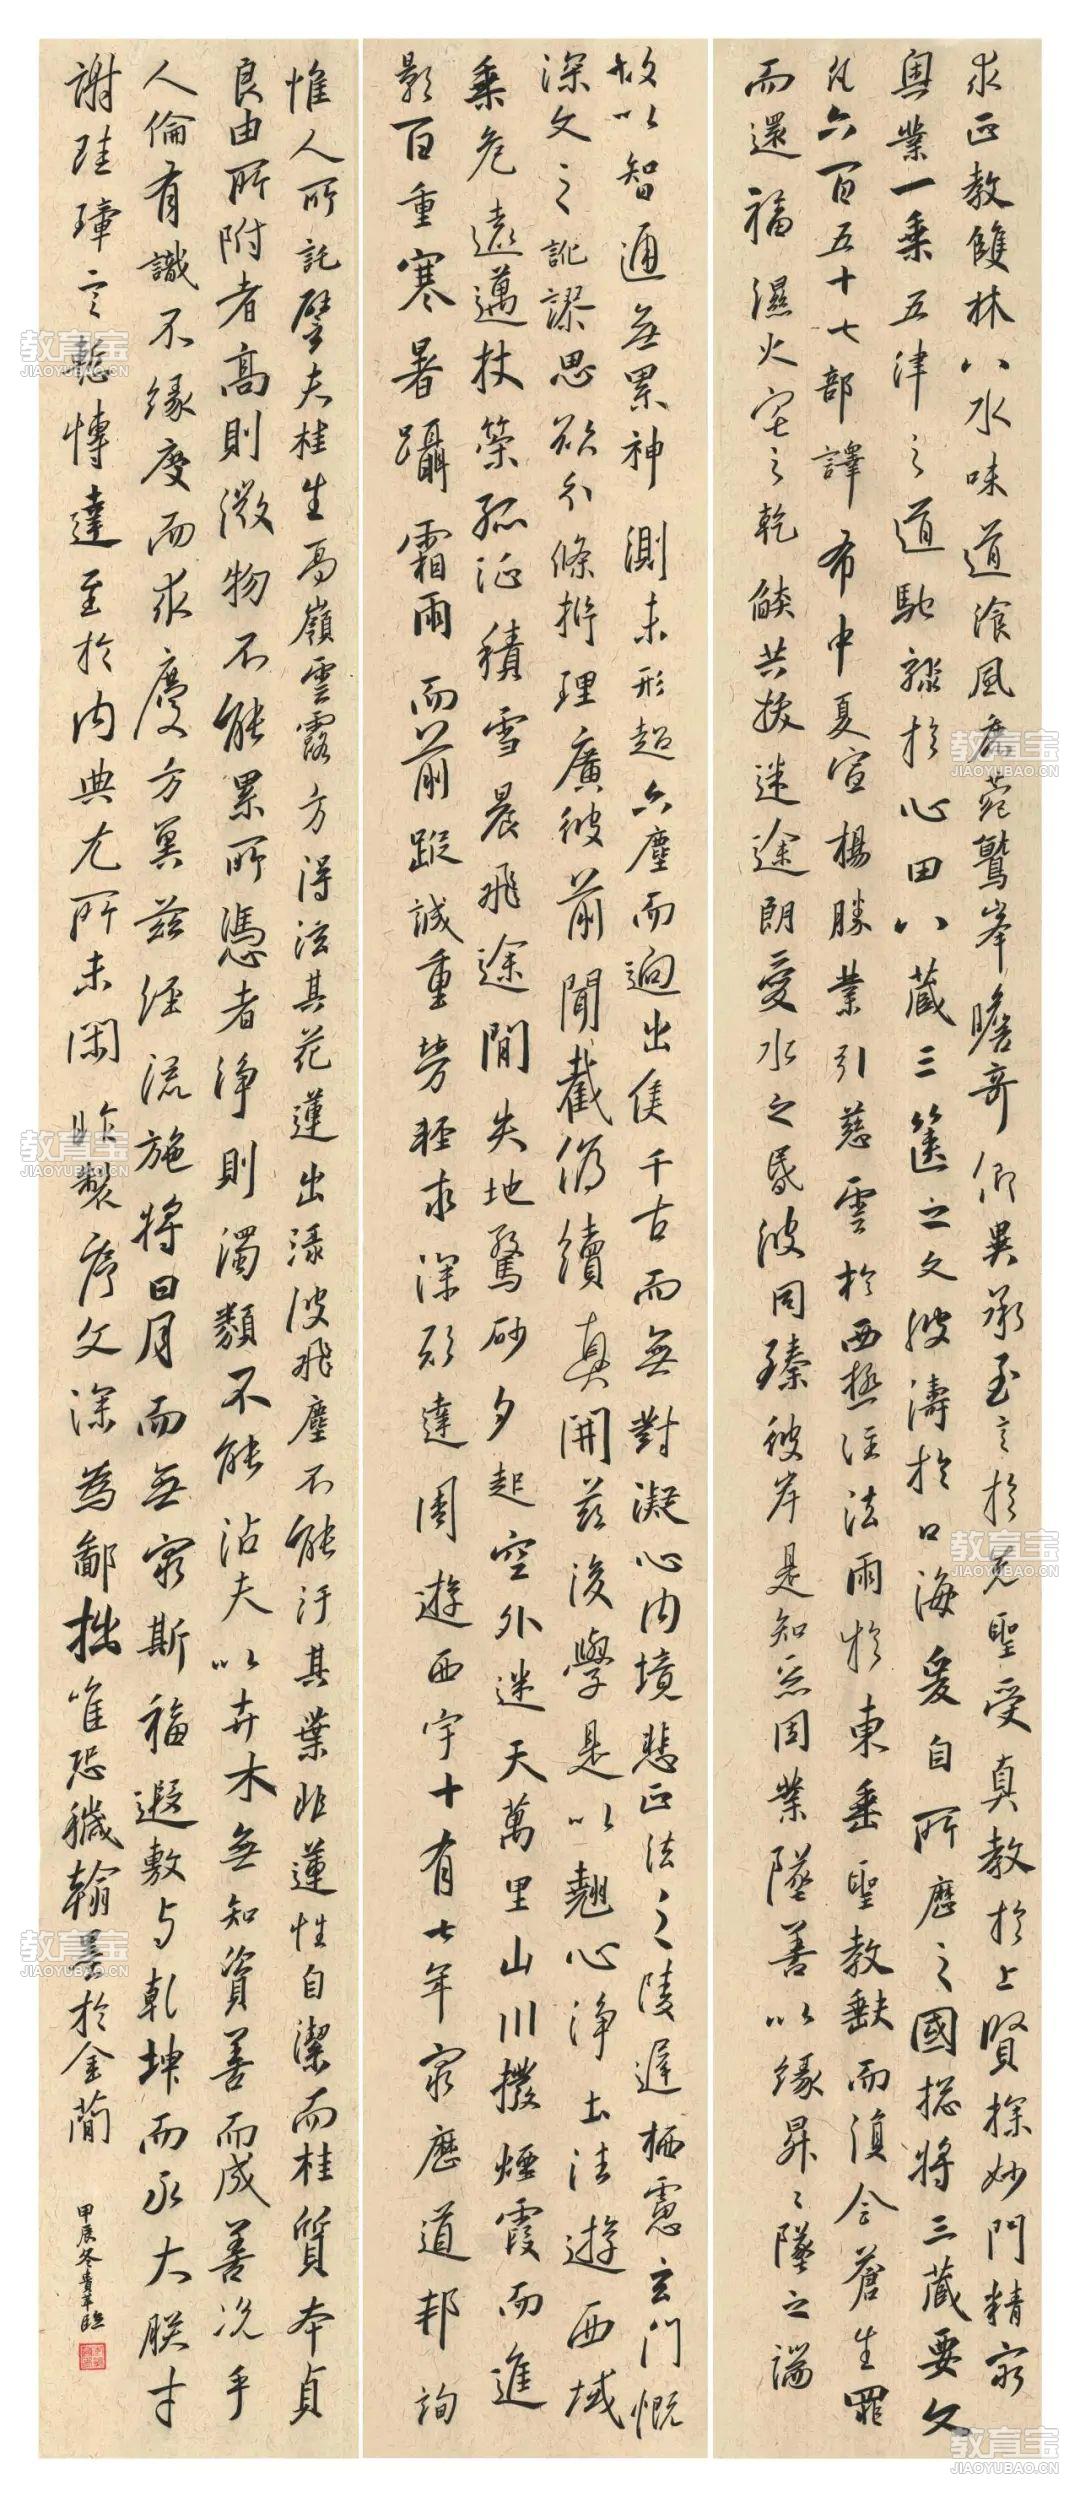 求正教雙林八水味道飡風鹿菀鷲峯瞻奇仰異承至言於先聖受真教於上賢探妙門精窮
奧業一乘五津之道馳驟於心田八藏三篋之文波濤於口海爰自所歷之國捴將三藏要文
凡六百五十七部譯布中夏宣楊勝業引慈雲於西極注法雨於東垂聖教缺而復全蒼生罪
而還福濕火宅之乾燄共拔迷途朗愛水之昏波同臻彼岸是知惡因業墜善以緣昇〻墜之端
故以智通無累神測未形超六塵而迥出隻千古而無對凝心內境悲正法之陵遲栖慮玄門慨
深文之訛謬思欲分條析理廣彼前聞截偽續真開茲後學是以翹心淨土法遊西域
乘危遠邁杖策孤征積雪晨飛途閒失地驚砂夕起空外迷天萬里山川撥煙霞而進
影百重寒暑躡霜雨而前蹤誠重勞輕求深願達周遊西宇十有七年窮歷道邦詢
惟人所託譬夫桂生高嶺雲露方得泫其花蓮出淥波飛塵不能汙其葉非蓮性自潔而桂質本貞
良由所附者高則微物不能累所憑者淨則濁類不能沾夫以卉木無知資善而成善況乎
人倫有識不緣慶而求慶方冀茲經流施將日月而無窮斯福遐敷与乾坤而永大朕才
謝珪璋言慙博達至於內典尤所未閑昨製序文深為鄙拙唯恐穢翰墨於金簡
甲辰冬貴平臨
教育宝
JIAOYUBAO.CN
教育宝
JIAOYUBAO.CN
教育宝
JIAOYUBAO.CN
教育宝
JIAOYUBAO.CN
教育宝
JIAOYUBAO.CN
教育宝
JIAOYUBAO.CN
教育宝
JIAOYUBAO.CN